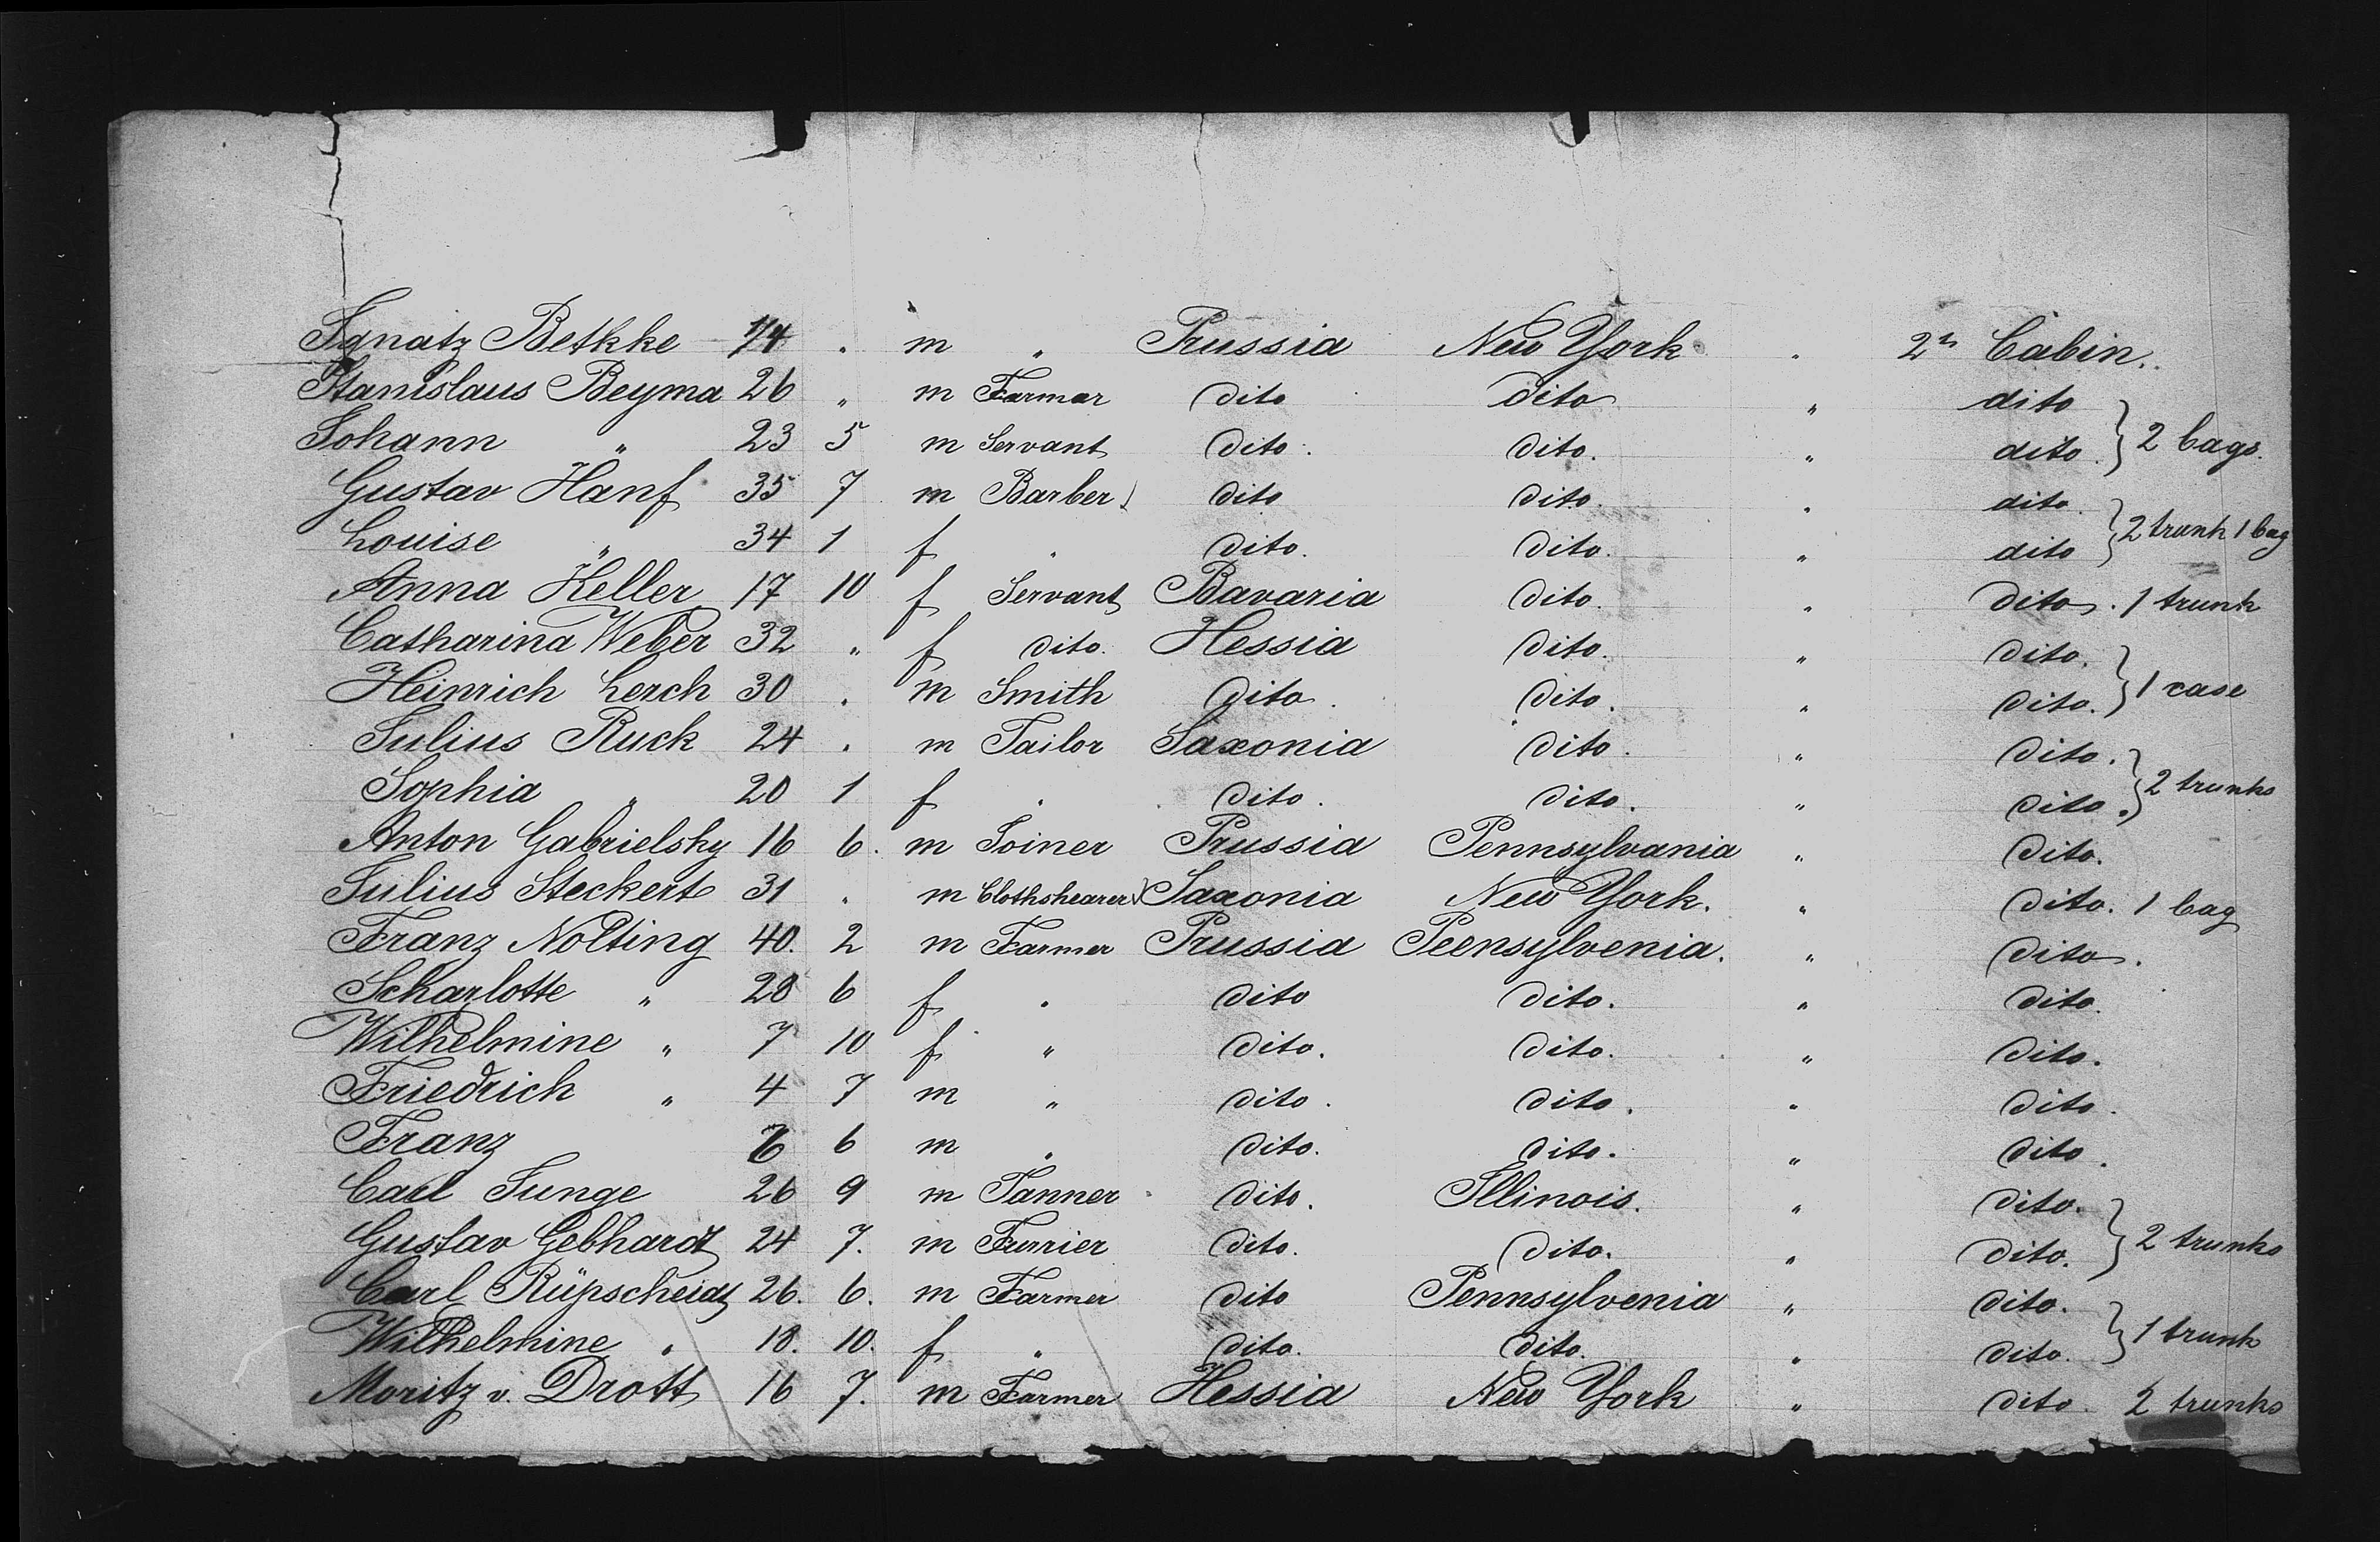 Ignatz Betkke 1/4 " m " Prussia New York " 2n Cabin.
Stanislaus Beyma 26 " m Farmar dito dito " dito
Johann " 23 5 m Servant dito. dito. " dito. } 2 bags.
Gustav Hanf 35 7 m Barber dito dito. " dito.
Louise " 34 1 f " dito. dito. " dito } 2 trunk 1 bag
Anna Keller 17 10 f Servant Bavaria dito. " dito. 1 trunk
Catharina Weber 32 " f dito. Hessia dito. " dito.
Heinrich Lerch 30 " m Smith dito. dito. " dito. } 1 case
Julius Ruck 24 " m Tailor Saxonia dito. " dito.
Sophia " 20 1 f " dito. dito. " dito. } 2 trunks
Anton Gabrielsky 16 6. m Joiner Prussia Pennsylvania " dito.
Julius Steckert 31 " m Clothshearer Saxonia New York. " dito. 1 bag
Franz Nolting 40. 2 m Farmer Prussia Peensylvenia. " dito.
Scharlotte " 28 6 f " dito dito. " dito.
Wilhelmine " 7 10 f " dito. dito. " dito.
Friedrich " 4 7 m " dito. dito. " dito.
Franz 6 m " dito. dito. " dito.
Carl Junge 26 9 m Tanner dito. Illinois. " dito.
Gustav Gebhardt 24 7. m Furrier dito. dito. " dito. } 2 trunks
Carl Rüpscheidt 26. 6. m Farmer dito Pennsylvenia " dito.
Wilhelmine " 18. 10. f " dito. dito. " dito. } 1 trunk
Moritz v. Drott 16 7. m Farmer Hessia New York " dito. 2 trunks